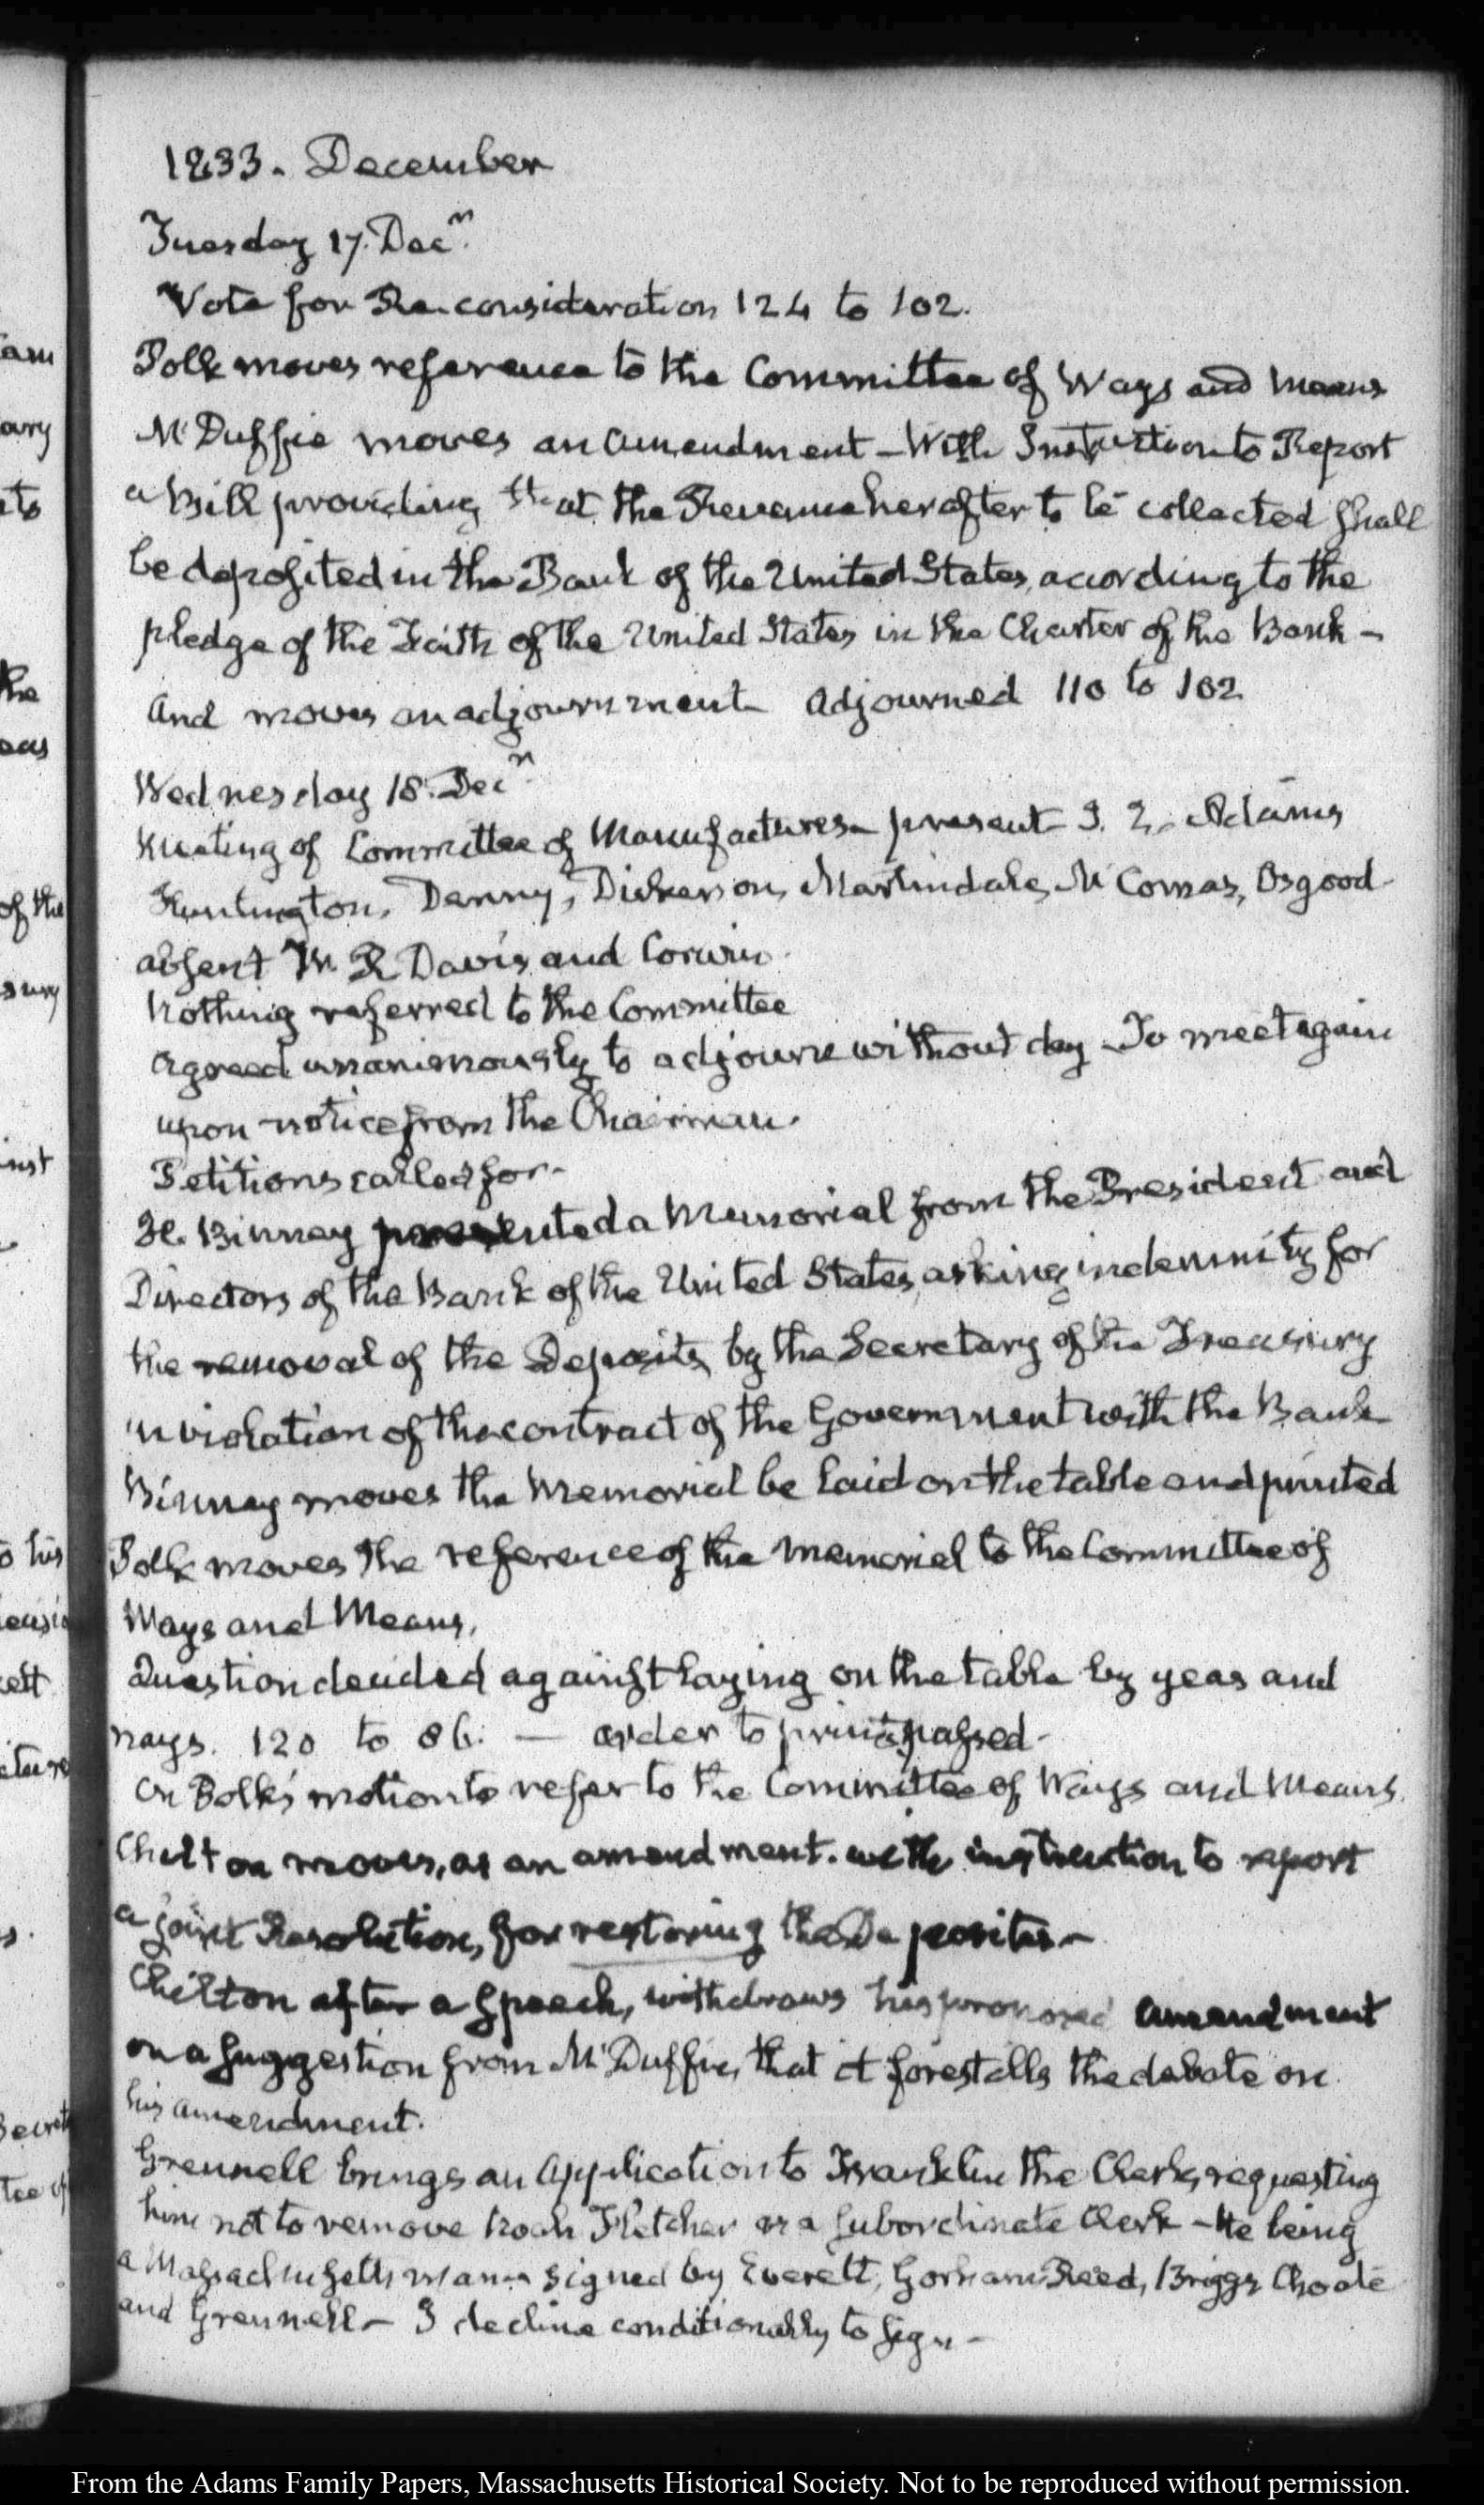 1833. December
Tuesday 17. Decr.
Vote for Re-consideration 124 to 102.
Polk moves reference to the Committee of Ways and Means
McDuffie moves an amendment – With Instruction to Report
a Bill providing that the Revenue hereafter to be collected shall
be deposited in the Bank of the United States, according to the
pledge of the Faith of the United States in the Charter of the Bank –
And moves an adjournment – Adjourned 110 to 102
Wednesday 18. Decr.
Meeting of Committee of Manufactures – present J. Q. Adams
Huntington, Denny, Dickerson, Martindale, McComas, Osgood –
absent W. R Davis and Corwin.
Nothing referred to the Committee
Agreed unanimously to adjourn without day – To meet again
upon notice from the Chairman.
Petitions called for –
H. Binney presented a Memorial from the President and
Directors of the Bank of the United States, asking indemnity for
the removal of the Deposits, by the Secretary of the Treasury
in violation of the contract of the Government with the Bank
Binney moves the Memorial be laid on the table and printed
Polk moves the reference of the Memorial to the Committee of
Ways and Means,
Question decided against laying on the table by yeas and
nays. 120 to 86. — order to print passed –
On Polk's motion to refer to the Committee of Ways and Means.
Chilton moves, as an amendment. with instruction to report
a joint Resolution, for restoring the Deposites –
Chilton after a Speech, withdraws his proposed amendment
on a suggestion from McDuffie, that it forestalls the debate on
his amendment.
Grennell brings an Application to Franklin the Clerk, requesting
him not to remove Noah Fletcher as a subordinate Clerk – He being
a Massachusetts man – signed by Everett, Gorham, Reed, Briggs Choate
and Grennell – I decline conditionally to sign –
am
ary
its
the
eas
of the
sury
inst
o his
ecisio
ett
iture
s.
Secret
tee of
From the Adams Family Papers, Massachusetts Historical Society. Not to be reproduced without permission.